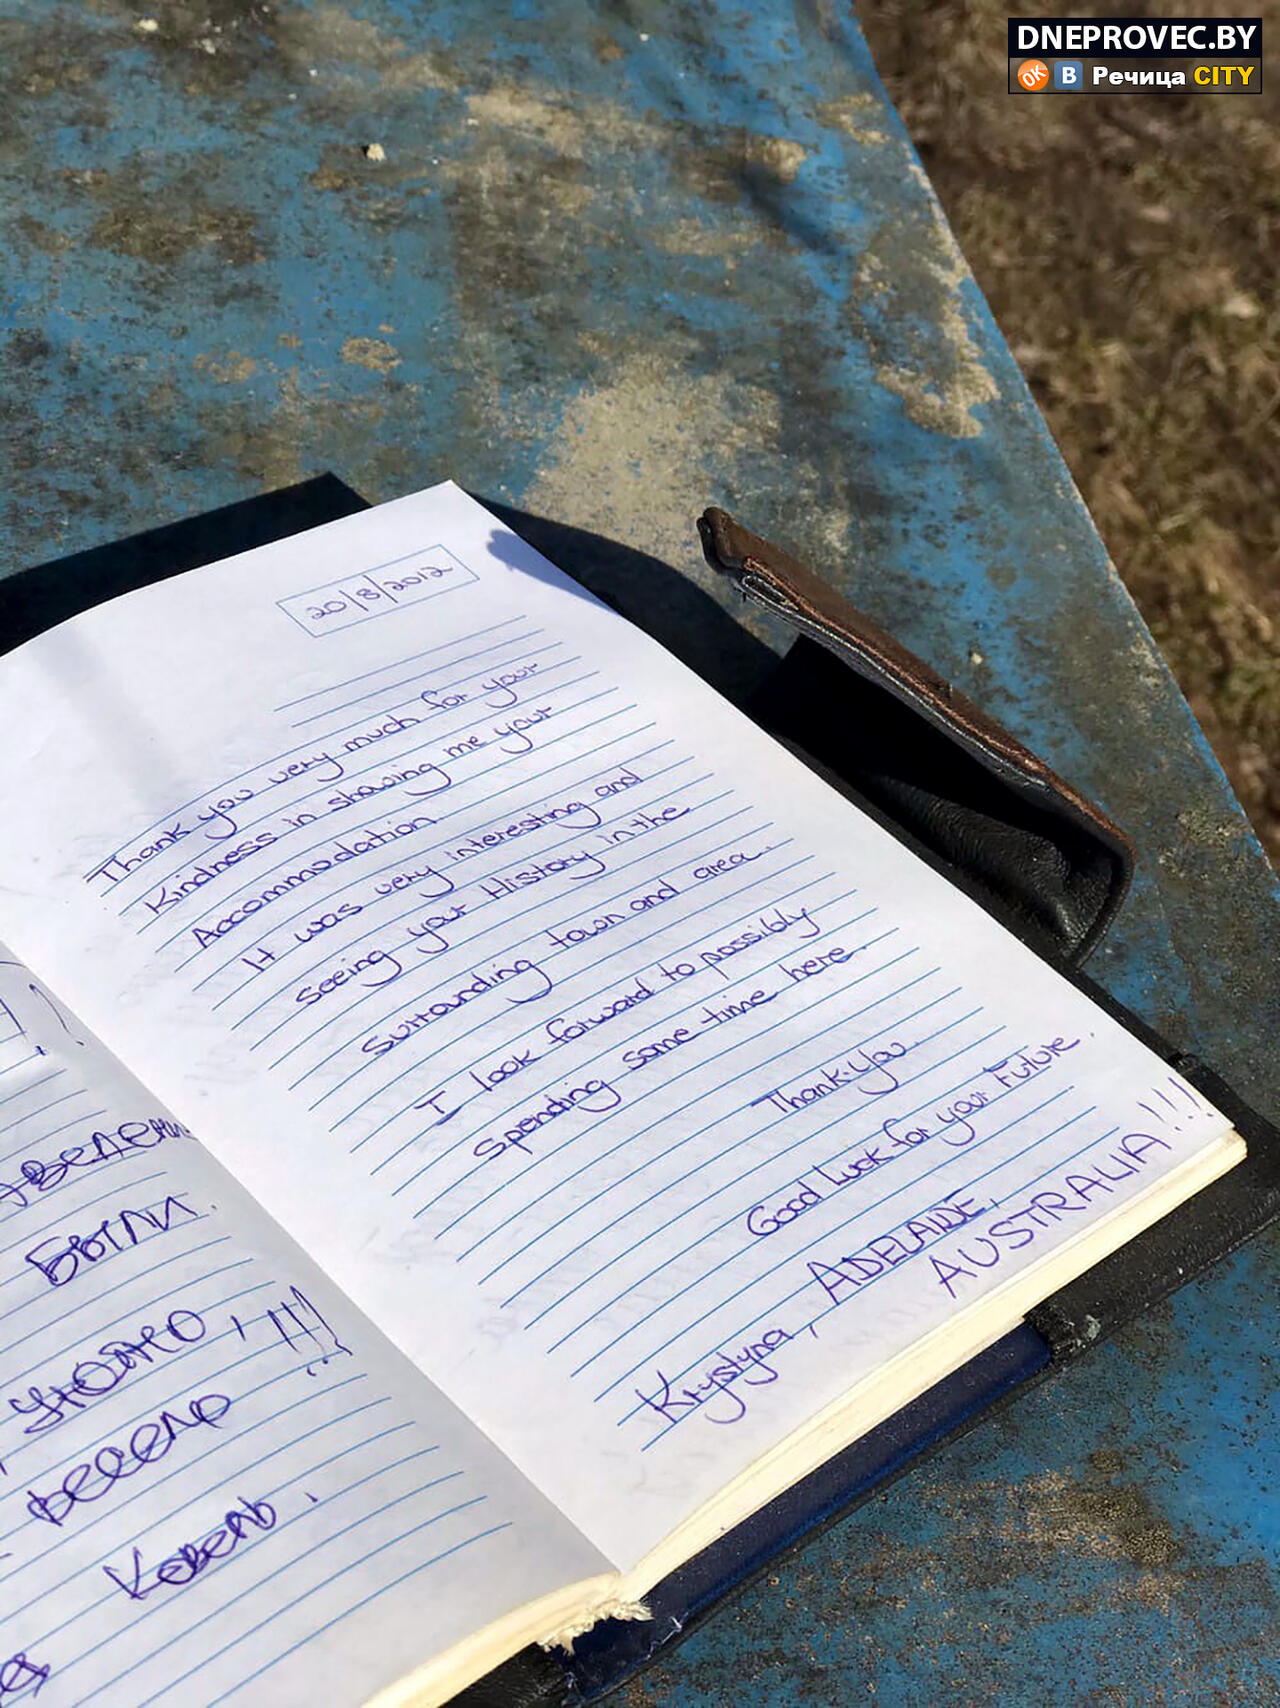 DNEPROVEC.BY
OK B Речица CITY
20/8/2012
Thank you very much for your
Kindness in showing me your
Accommodation.
It was very interesting and
seeing your History in the
surrounding town and area.
I look forward to possibly
spending some time here.
Thank-You.
Good Luck for your Future.
Krystyna, ADELAIDE,
AUSTRALIA!!!!
были.
Ковель.